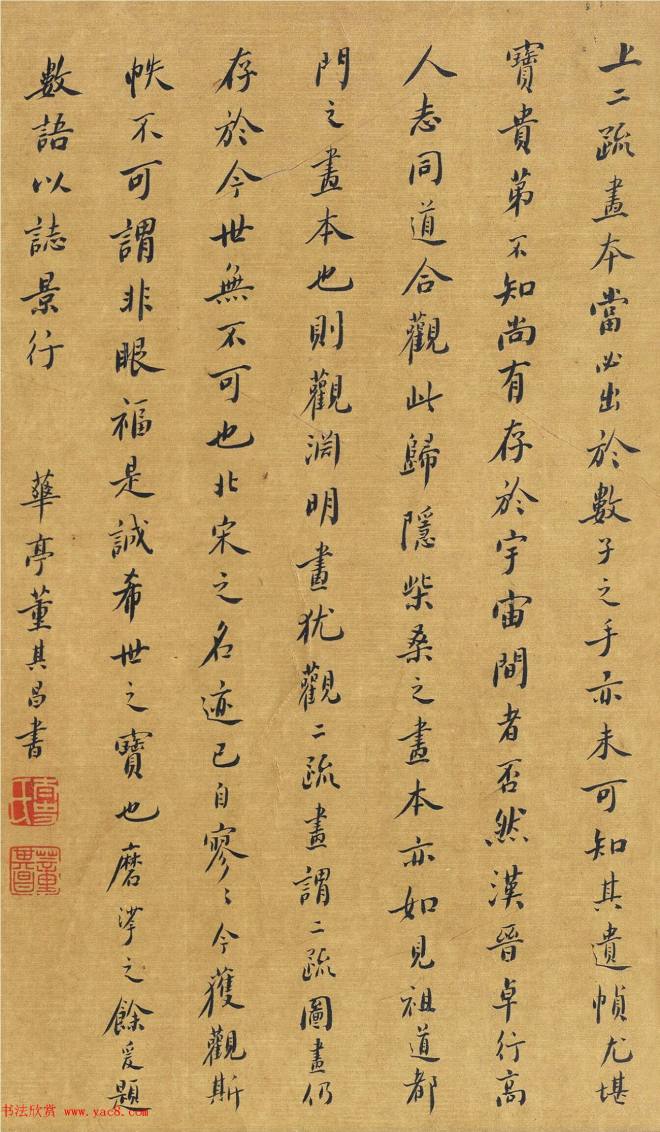 上二疏畫本當必出於數子之手亦未可知其遺幀尤堪
寶貴第不知尚有存於宇宙間者否然漢晉卓行高
人志同道合觀此歸隱柴桑之畫本亦如見祖道都
門之畫本也則觀淵明畫犹觀二疏畫謂二疏圖畫仍
存於今世無不可也北宋之名迹已自寥〻今獲觀斯
帙不可謂非眼福是誠希世之寶也磨挲之餘爰題
數語以誌景行
華亭董其昌書
董其昌
书法欣赏 www.yac8.com